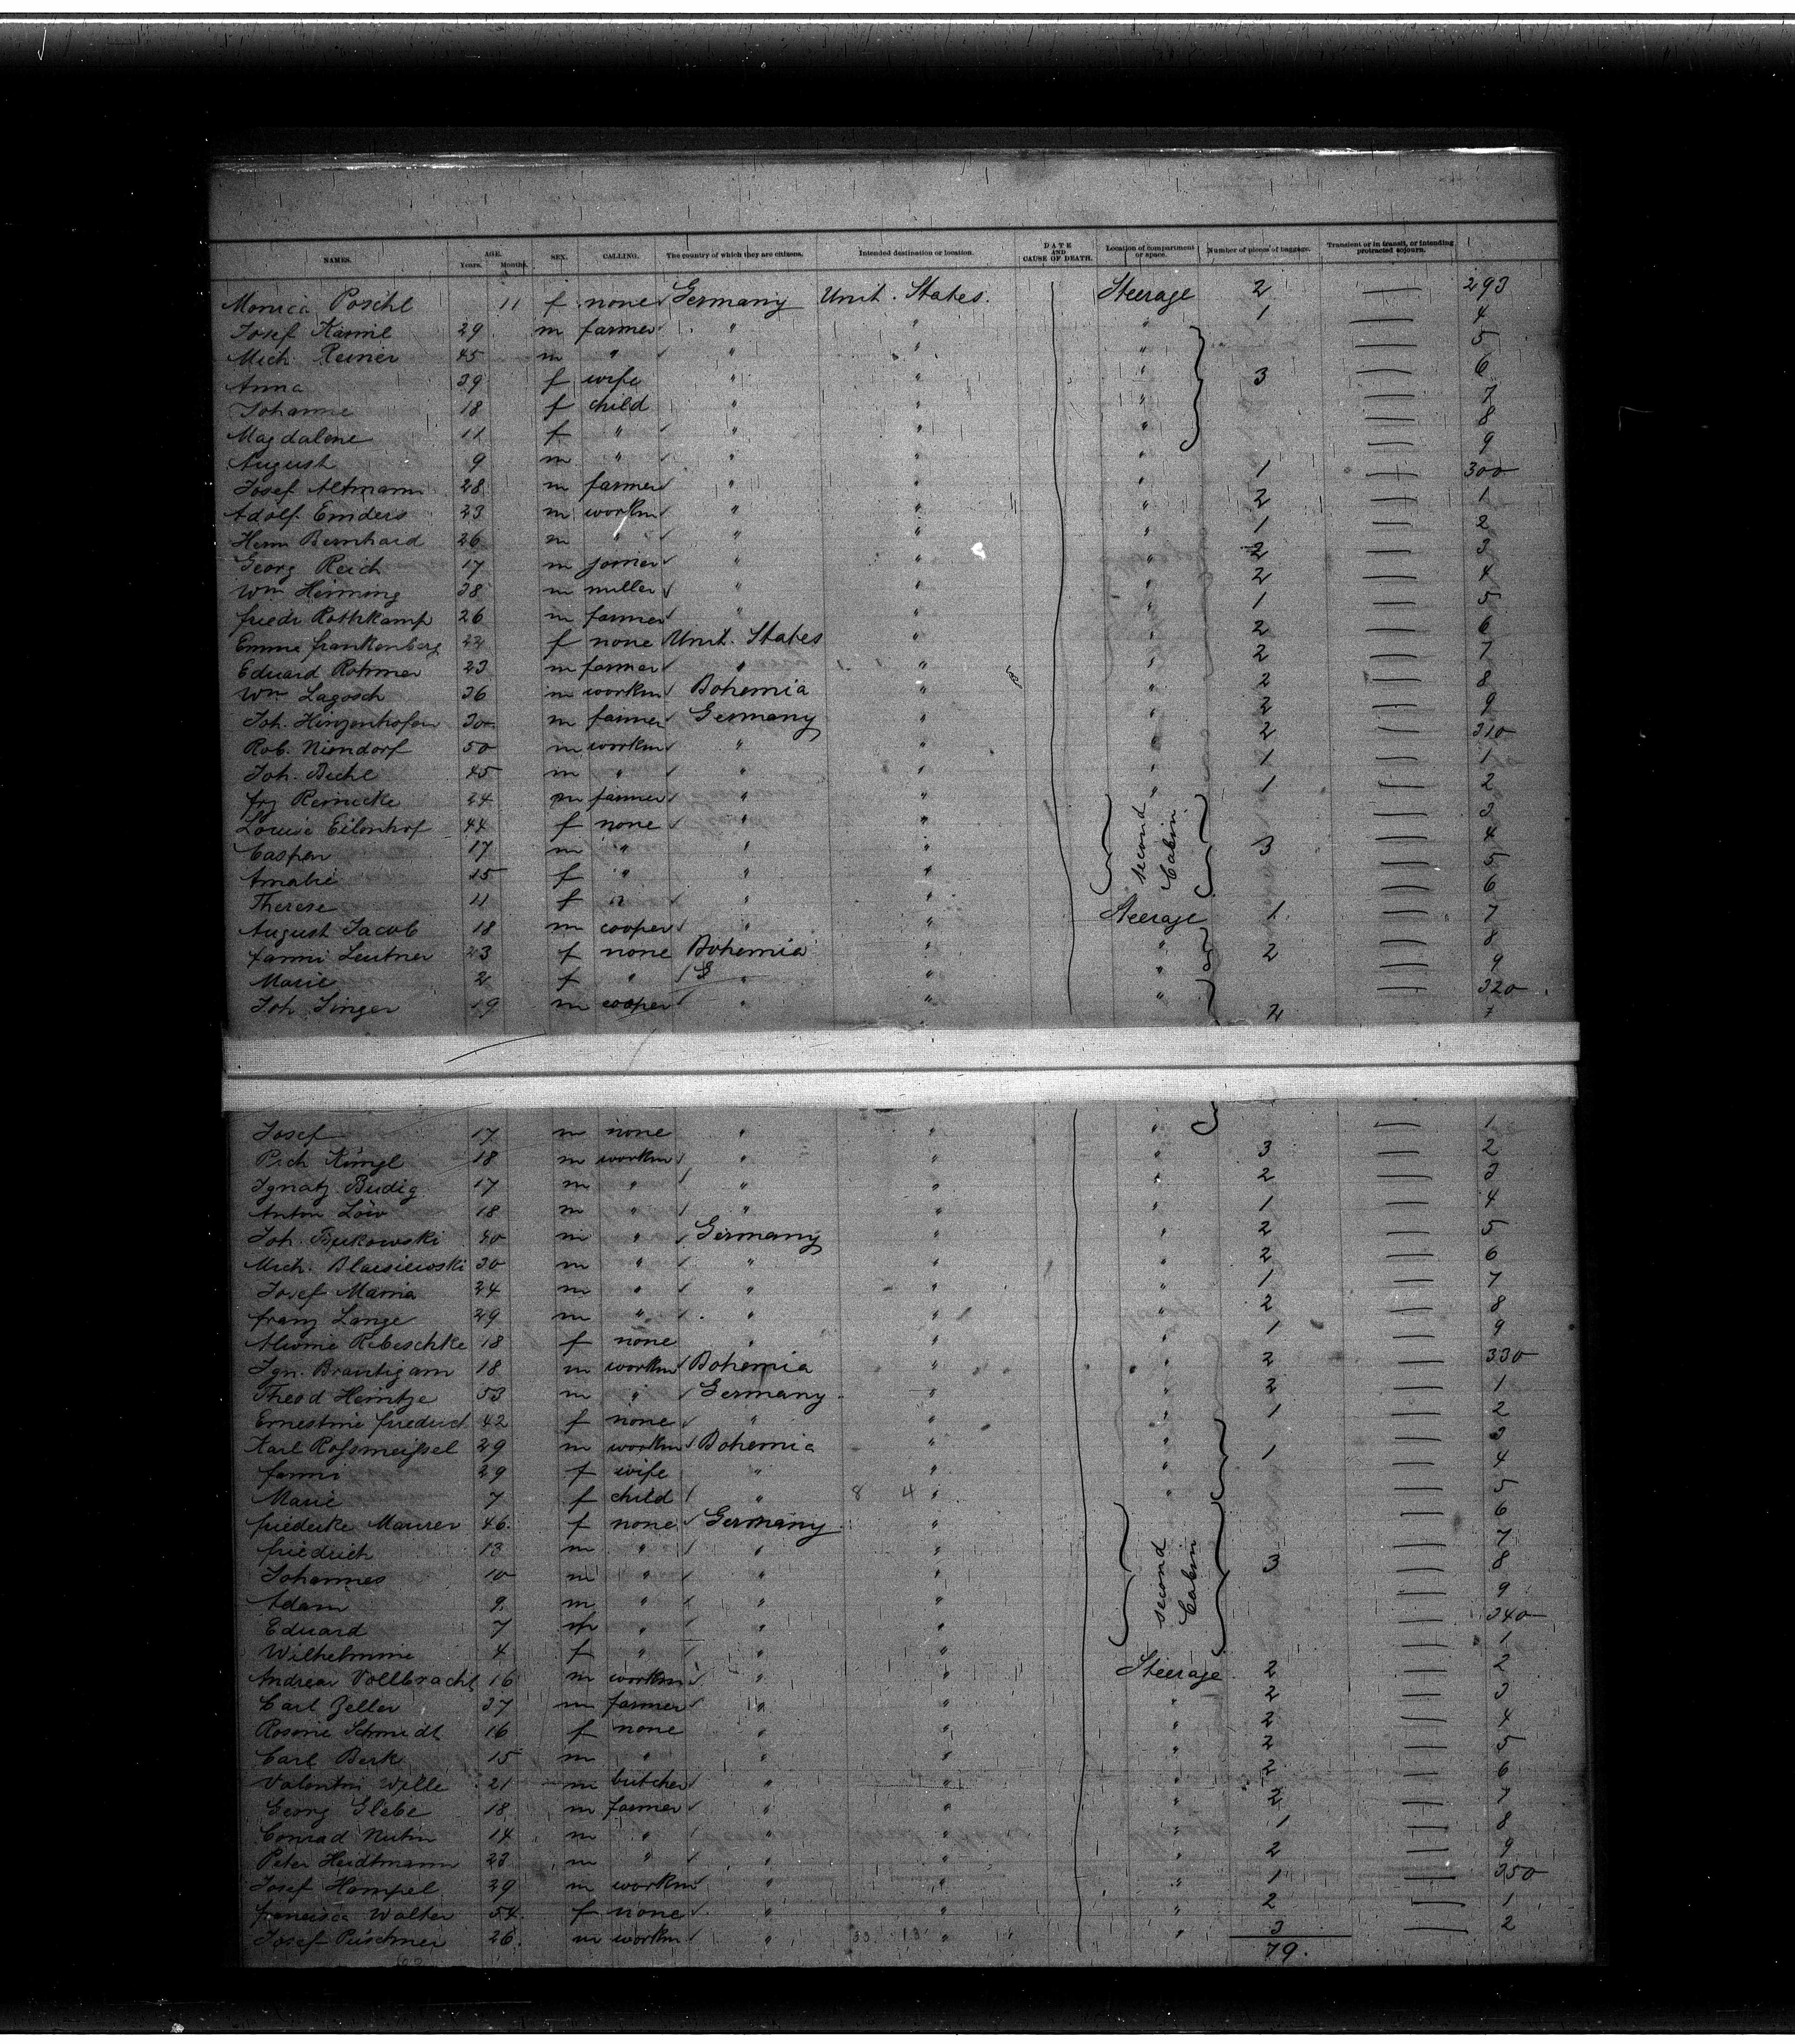 NAMES. AGE. Years. Months. SEX. CALLING. The country of which they are citizens. Intended destination or location. DATE AND CAUSE OF DEATH. Location of compartment or space. Number of pieces of baggage. Transient or in transit, or intending protracted sojourn.
Monica Poschl 11 f none Germany Unit. States. Steerage 2 — 293
Josef 29 m farmer " " " 1 — 4
Mich. Reiner 45 m " " " " — 5
Anna 39 f wife " " " 3 — 6
Johanne 18 f child " " " — 7
Magdalene 11 f " " " " — 8
August 9 m " " " " — 9
Josef Altmann 28 m farmer " " " 1 — 300
Adolf Emders 23 m workm " " " 2 — 1
Herm Bernhard 26 m " " " " 1 — 2
Georg Reich 17 m joiner " " " 2 — 3
Wm 38 m miller " " " 2 — 4
friedr Rothkamp 26 m farmer " " " 1 — 5
Emma frankenberg 22 f none Unit. States " " 2 — 6
Eduard Rohmer 23 m farmer " " " 2 — 7
Wm Lagosch 36 m workm Bohemia " " 2 — 8
Joh. Hinzenhofen 30 m farmer Germany " " 2 — 9
Rob. Niendorf 50 m workm " " " 2 — 310
Joh. Biehl 45 m " " " " 1 — 1
frz Reinicke 24 m farmer " " " 1 — 2
Louise Eilenhof 44 f none " " second Cabin — 3
Casper 17 m " " " 3 — 4
Amalie 15 f " " " — 5
Therese 11 f " " " — 6
August Jacob 18 m cooper " " Steerage 1 — 7
fanni Leutner 23 f none Bohemia " " 2 — 8
Marie 2 f " " " " — 9
Joh Singer 19 m cooper " " " 2 — 320
Josef 17 m none " " " — 1
Küngl 18 m workm " " " 3 — 2
Ignatz Budig 17 m " " " " 2 — 3
Anton Löw 18 m " " " " 1 — 4
Joh. Bukowski 40 m " Germany " " 2 — 5
Mich. Blaesiewski 30 m " " " " 2 — 6
Josef 24 m " " " " 1 — 7
franz Lange 29 m " " " " 2 — 8
Rebeschke 18 f none " " " 1 — 9
Ign. Brautigam 18 m workm Bohemia " " 2 — 330
Theod Heintze 53 m " Germany " " 2 — 1
Ernestine friedrich 42 f none " " " 1 — 2
Karl Roßmeißel 29 m workm Bohemia " " — 3
fanni 29 f wife " " " 1 — 4
Marie 7 f child " 8 4 " " — 5
friederike Maurer 46 f none Germany " second Cabin — 6
friedrich 13 m " " " — 7
Johannes 10 m " " " 3 — 8
Adam 9 m " " " — 9
Eduard 7 m " " " — 340
Wilhelmine 4 f " " " — 1
Andreas Vollbracht 16 m workm " " Steerage 2 — 2
Carl Zeller 37 m farmer " " " 2 — 3
Rosine Schmidt 16 f none " " " 2 — 4
Carl Berk 15 m " " " " 2 — 5
Valentin Wille 21 m butcher " " " 2 — 6
Georg Glebe 18 m farmer " " " 2 — 7
Conrad 14 m " " " " 1 — 8
Peter Heidtmann 23 m " " " " 2 — 9
Josef Hampel 29 m workm " " " 1 — 350
francisca Walter 54 f none " " " 2 — 1
Josef Püschner 26 m workm " 33 13 " " 3 — 2
79.